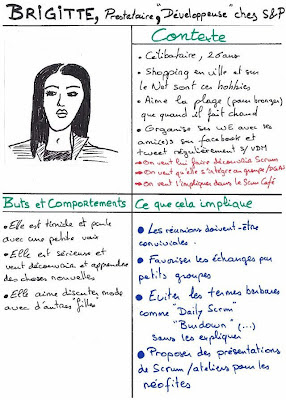 BRIGITTE, Prestataire, "Développeuse" chez S&P
Contexte
• Célibataire, 26 ans
• Shopping en ville et sur
le Net sont ces hobbies
• Aime la plage (pour bronzer)
que quand il fait chaud
• Organise ses WE avec ses
ami(e)s sur facebook et
tweet régulièrement s/ VDM
→ On veut lui faire découvrir Scrum
→ On veut qu'elle s'intègre au groupe
→ On veut l'impliquer dans le Scrum Café
Buts et Comportements
• Elle est timide et parle
avec une petite voix
• Elle est sérieuse et
veut découvrir et apprendre
des choses nouvelles
• Elle aime discuter mode
avec d'autres "filles"
Ce que cela implique
• Les réunions doivent-être
conviviales
• Favoriser les échanges par
petits groupes
• Eviter les termes barbares
comme "Daily Scrum"
"Burdown" (...)
sans les expliquer
• Proposer des présentations
de Scrum/ateliers pour les
néofites